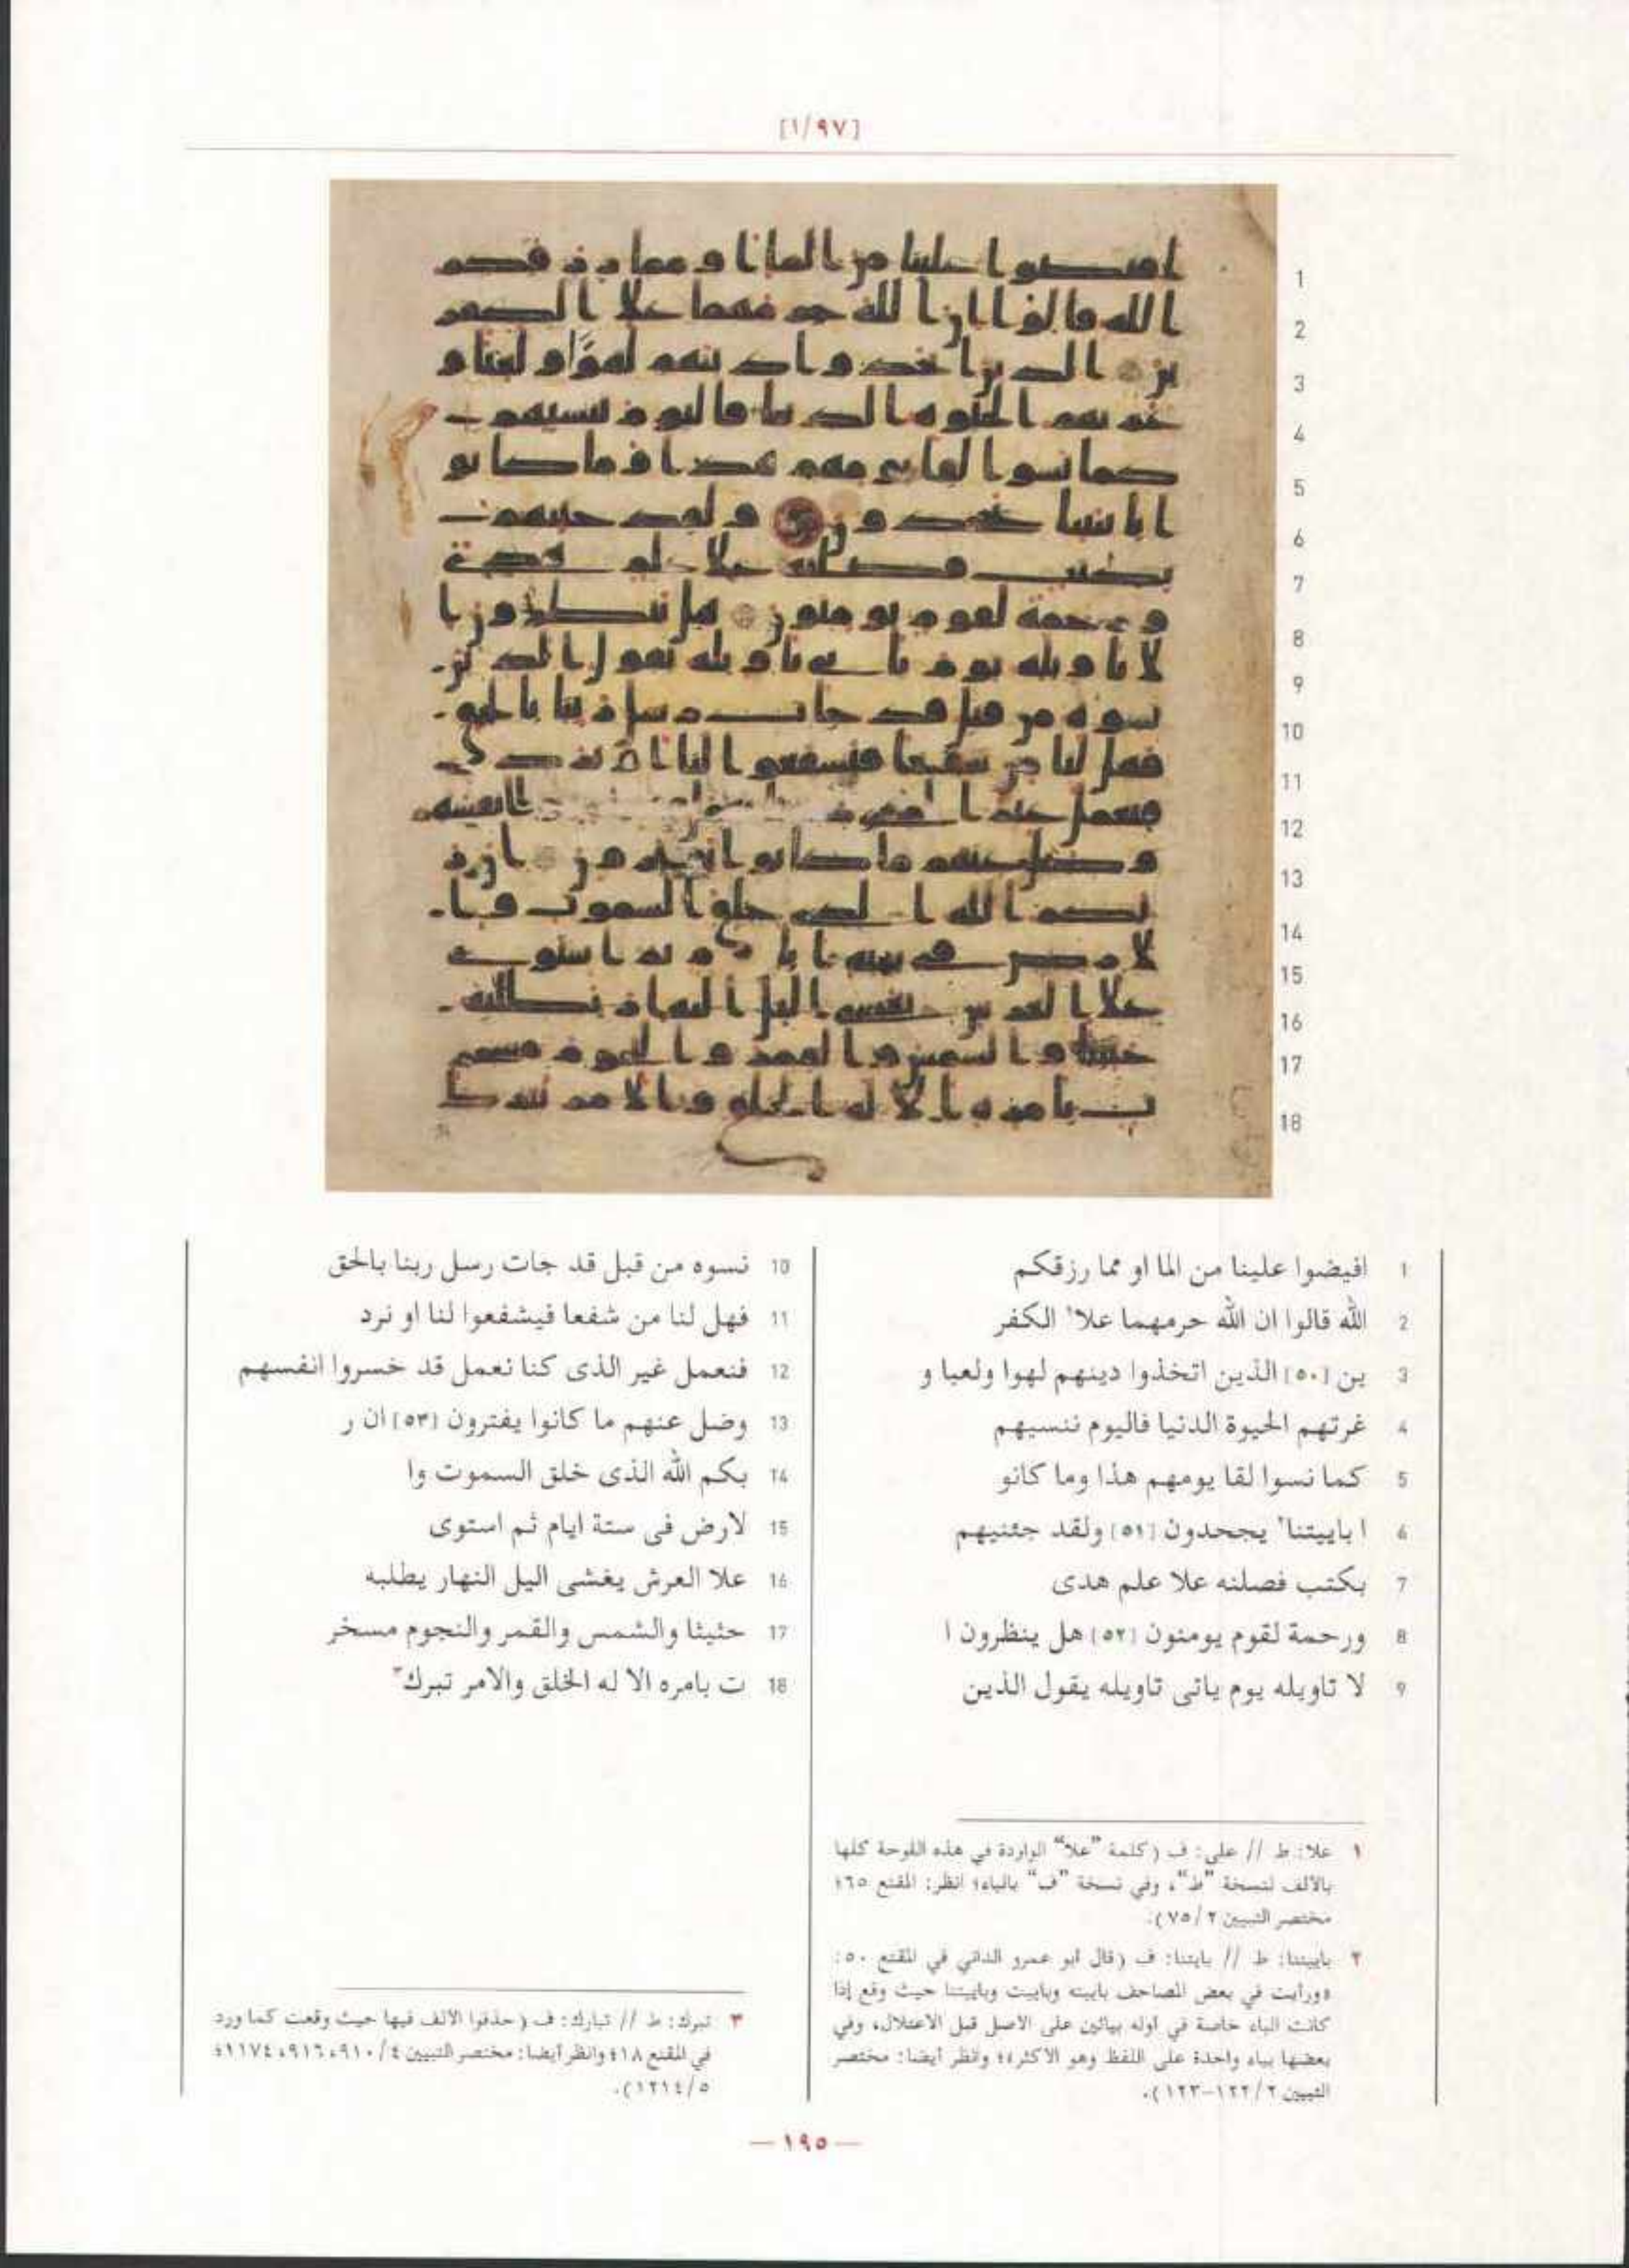 [١/٩٧]
1 افيضوا علينا من الما او مما رزقكم
2 الله قالوا ان الله حرمهما علا١ الكفر
3 ين [٥٠] الذين اتخذوا دينهم لهوا ولعبا و
4 غرتهم الحيوة الدنيا فاليوم ننسيهم
5 كما نسوا لقا يومهم هذا وما كانو
6 ا باييتنا٢ يجحدون [٥١] ولقد جئنيهم
7 بكتب فصلنه علا علم هدى
8 ورحمة لقوم يومنون [٥٢] هل ينظرون ا
9 لا تاويله يوم ياتى تاويله يقول الذين
10 نسوه من قبل قد جات رسل ربنا بالحق
11 فهل لنا من شفعا فيشفعوا لنا او نرد
12 فنعمل غير الذى كنا نعمل قد خسروا انفسهم
13 وضل عنهم ما كانوا يفترون [٥٣] ان ر
14 بكم الله الذى خلق السموت وا
15 لارض فى ستة ايام ثم استوى
16 علا العرش يغشى اليل النهار يطلبه
17 حثيثا والشمس والقمر والنجوم مسخر
18 ت بامره الا له الخلق والامر تبرك٣
١ علا: ط // على: ف (كلمة "علا" الواردة في هذه اللوحة كلها
بالألف لنسخة "ط"، وفي نسخة "ف" بالياء؛ انظر: المقنع ٦٥؛
مختصر التبيين ٢/ ٧٥).
٢ باييتنا: ط // بايتنا: ف (قال أبو عمرو الداني في المقنع ٥٠:
«ورأيت في بعض المصاحف باييته وباييت وباييتنا حيث وقع إذا
كانت الباء خاصة في أوله بيائين على الأصل قبل الاعتلال، وفي
بعضها بياء واحدة على اللفظ وهو الأكثر»؛ وانظر أيضا: مختصر
التبيين ٢/ ١٢٢-١٢٣).
٣ تبرك: ط // تبارك: ف (حذفوا الألف فيها حيث وقعت كما ورد
في المقنع ١٨؛ وانظر أيضا: مختصر التبيين ٤/ ٩١٠، ٩١٦، ١١٧٤؛
٥/ ١٢١٤).
— ١٩٥ —